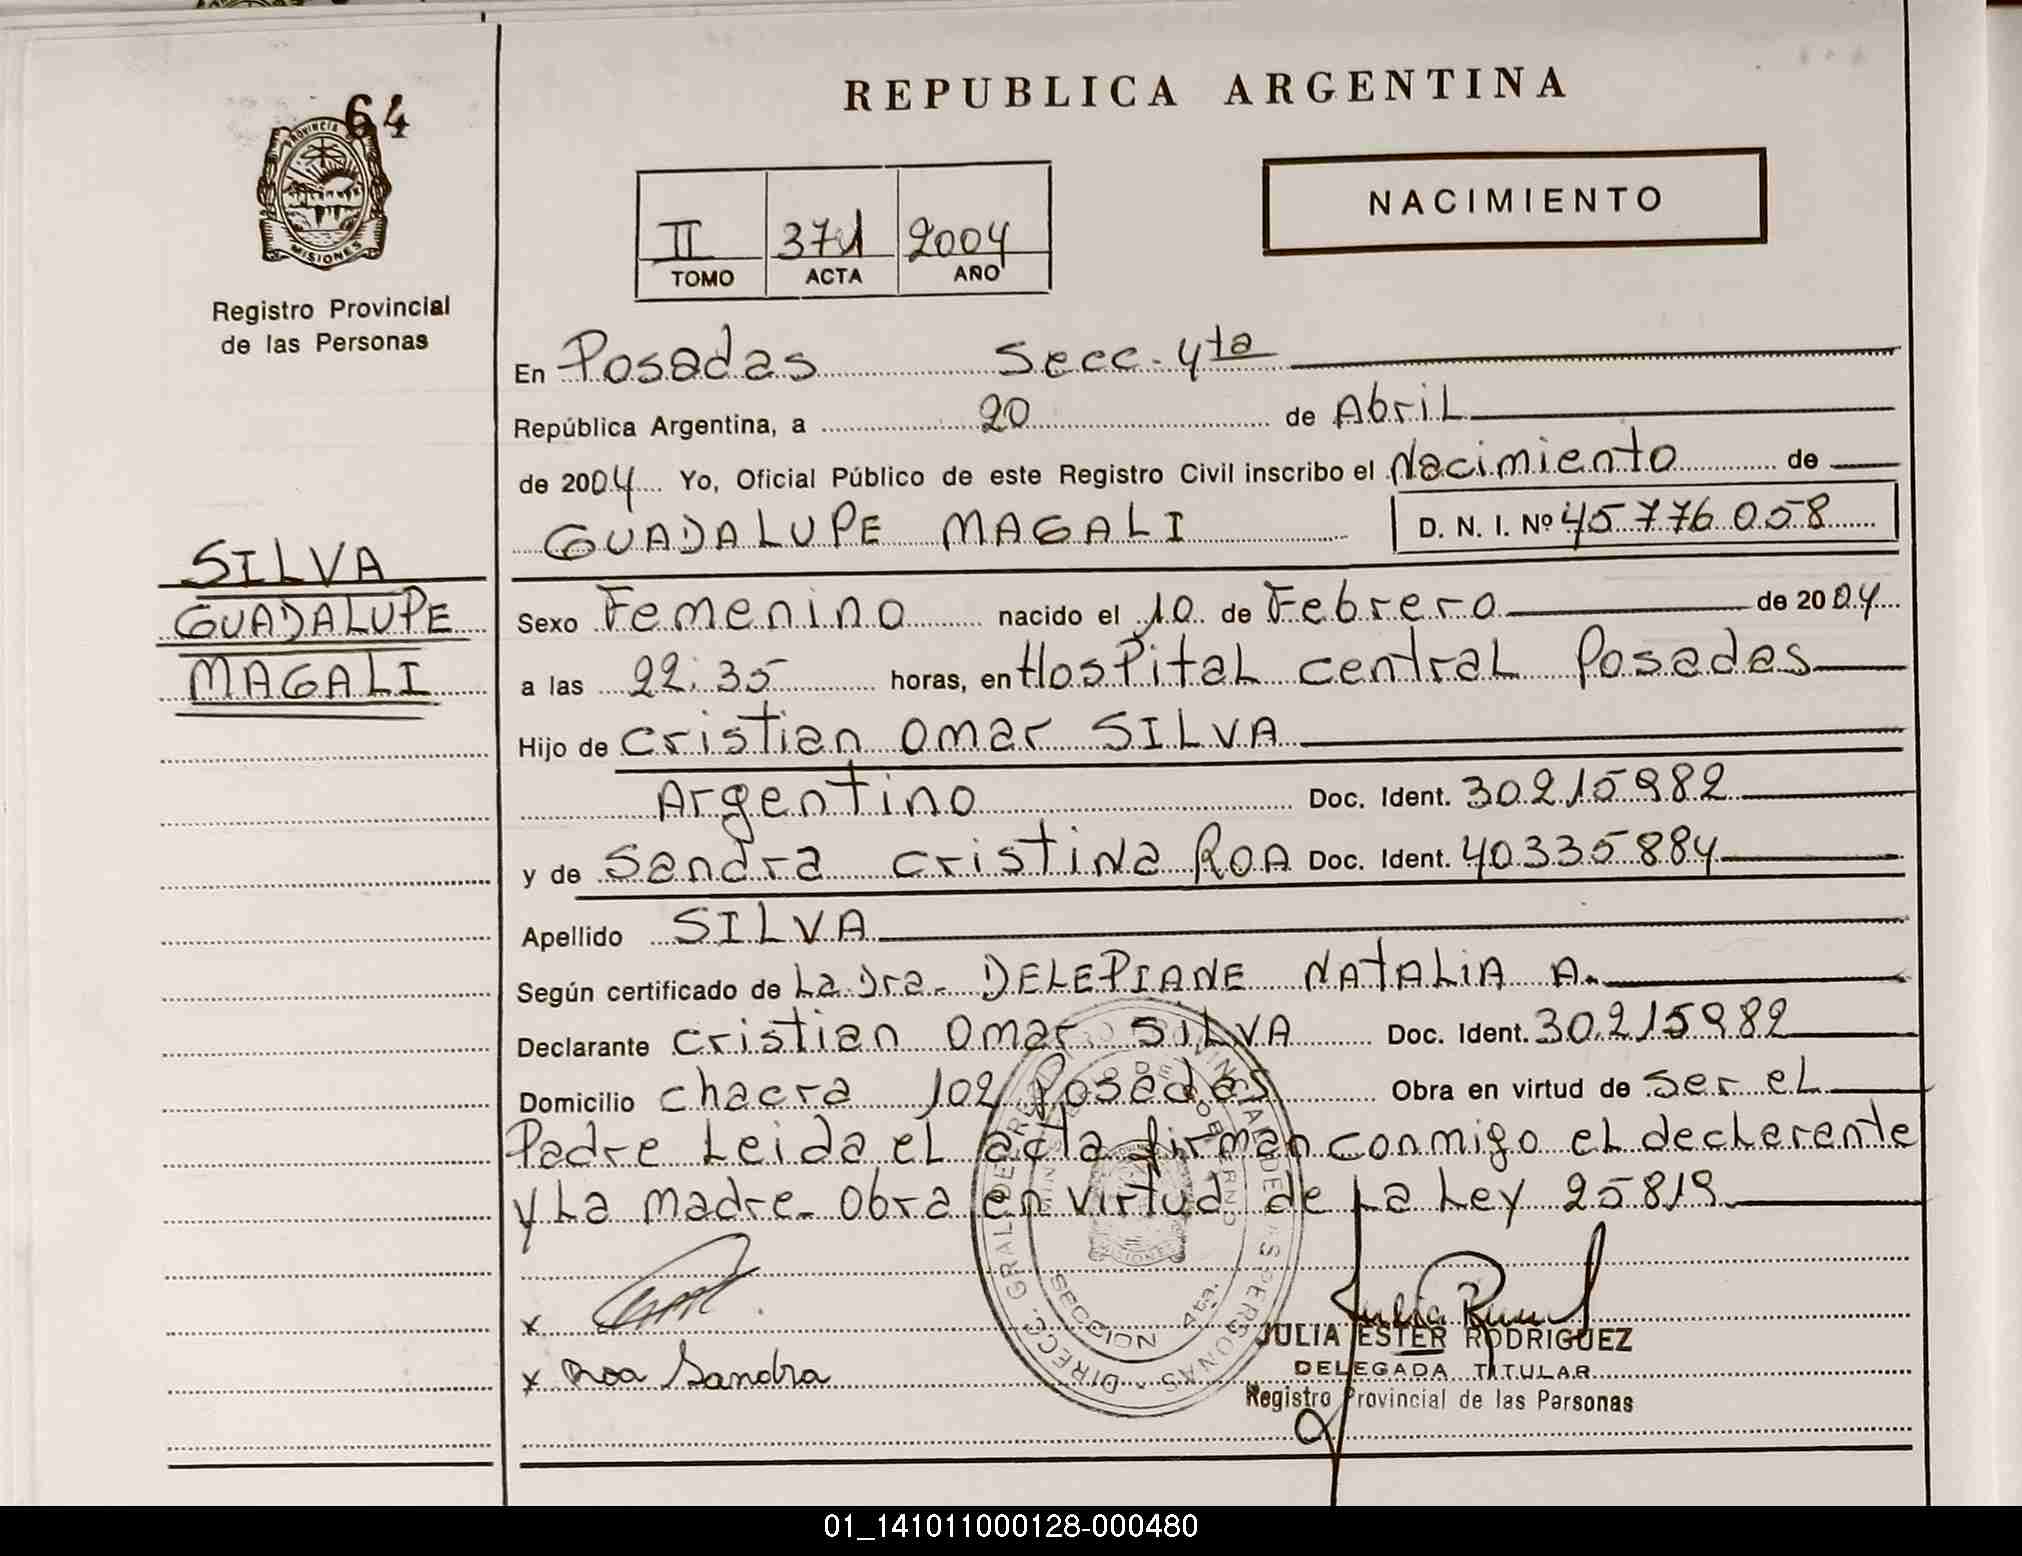 64
PROVINCIA
MISIONES
Registro Provincial
de las Personas
SILVA
GUADALUPE
MAGALI
REPUBLICA ARGENTINA
NACIMIENTO
II 371 2004
TOMO ACTA AÑO
En Posadas Secc. 4ta
República Argentina, a 20 de Abril
de 2004 Yo, Oficial Público de este Registro Civil inscribo el Nacimiento de
GUADALUPE MAGALI D. N. I. Nº 45776058
Sexo Femenino nacido el 10 de Febrero de 2004
a las 22:35 horas, en Hospital central Posadas
Hijo de Cristian Omar SILVA
Argentino Doc. Ident. 30215982
y de Sandra Cristina ROA Doc. Ident. 40335884
Apellido SILVA
Según certificado de La Dra. DELEPIANE NATALIA A.
Declarante Cristian Omar SILVA Doc. Ident. 30215982
Domicilio chacra 102 Posadas Obra en virtud de ser el
Padre Leida el acta firman conmigo el declarante
y La madre. Obra en virtud de La Ley 25819
x
x Roa Sandra
SECCION 4ta.
JULIA ESTER RODRIGUEZ
DELEGADA TITULAR
Registro Provincial de las Personas
01_141011000128-000480